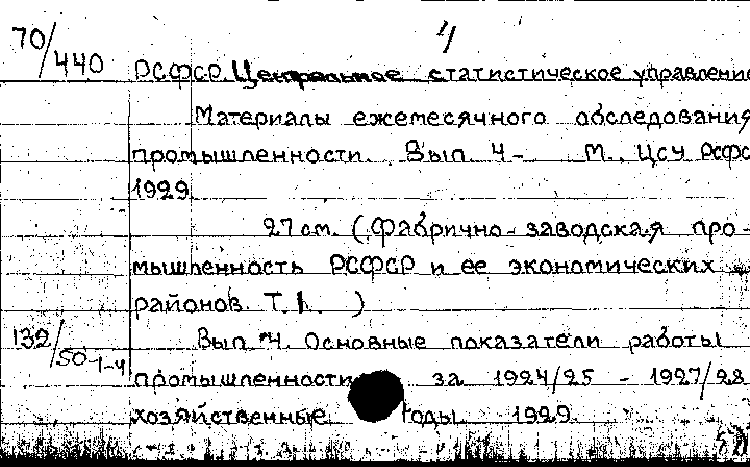 4
70/440 РСФСР. Центральное статистическое управление
Материалы ежемесячного обследования
промышленности. Вып. 4- М., ЦСУ РСФС
1929
27 см. (Фабрично-заводская про-
мышленность РСФСР и ее экономических
районов. Т.1. )
132/50-1-4 Вып. 4. Основные показатели работы
промышленности за 1924/25 - 1927/28
хозяйственные годы. 1929.